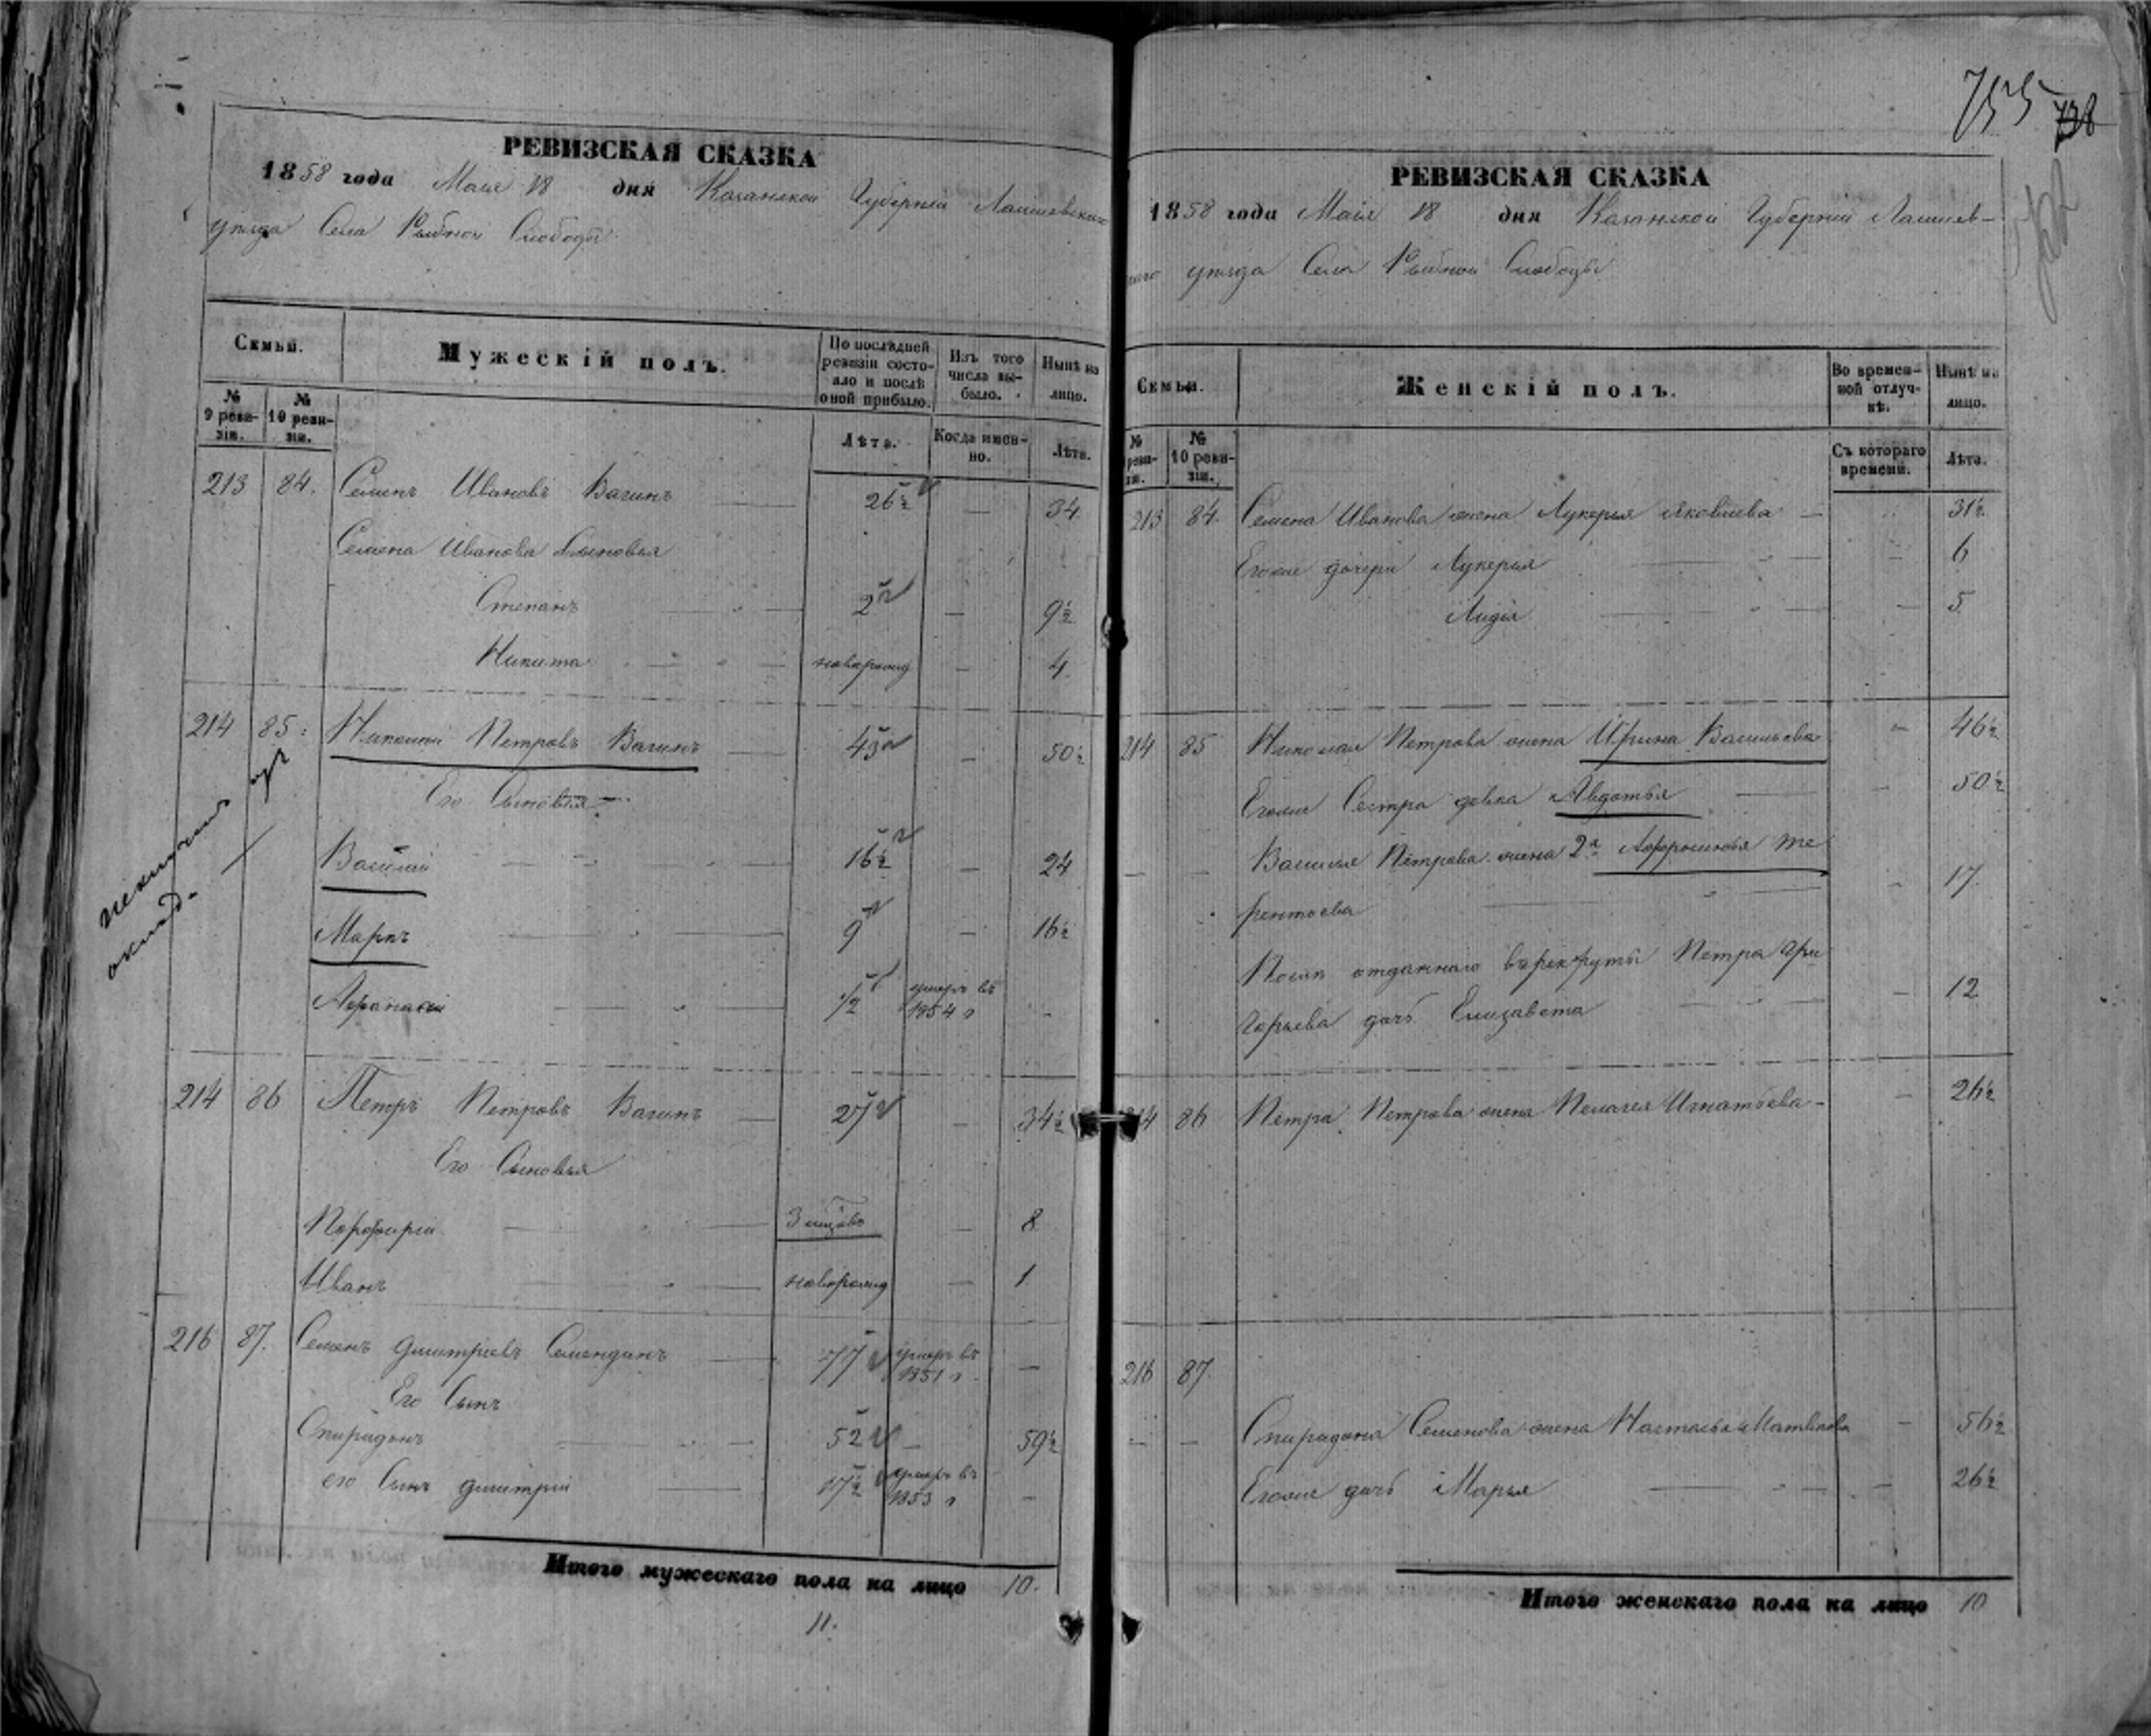 755 738
РЕВИЗСКАЯ СКАЗКА
1858 года Маія 18 дня Казанской Губерніи Лаишевскаго
уѣзда Села Рыбной Слободы
Семьи.
Мужескій полъ.
По послѣдней ревизіи состояло и послѣ оной прибыло.
Изъ того числа выбыло.
Нынѣ на лицо.
№ 9 ревизіи.
№ 10 ревизіи.
Лѣта.
Когда именно.
Лѣта.
213 84. Семенъ Ивановъ Вагинъ 26½ — 34
Семена Иванова Сыновья
Степанъ 2 — 9½
Никита новорожд — 4
214 85. Николай Петровъ Вагинъ 43 — 50½
Его Сыновья
Василій 16½ — 24
Маркъ 9 — 16½
Афанасій ½ умеръ въ 1854 г -
214 86 Петръ Петровъ Вагинъ 27 — 34½
Его Сыновья
Порфирій 3 мѣсов — 8
Иванъ новорожд — 1
216 87. Семенъ Дмитріевъ 77 умеръ въ 1851 г —
Его Сынъ
Спиридонъ 52 — 59½
его Сынъ Дмитрій 17½ умеръ въ 1853 г —
Итого мужескаго пола на лицо 10.
11.
РЕВИЗСКАЯ СКАЗКА
1858 года Маія 18 дня Казанской Губерніи Лаишев-
скаго уѣзда Села Рыбной Слободы
Семьи.
Женскій полъ.
Во временной отлучкѣ.
Нынѣ на лицо.
№ ревизіи.
№ 10 ревизіи.
Съ котораго времени.
Лѣта.
213 84. Семена Иванова жена Лукерья Яковлева — 31½
Егоже дочери Лукерья — 6
Лидія — 5
214 85 Николая Петрова жена Ирина Васильева - 46½
Егоже Сестра девка Авдотья - 50½
Василья Петрова жена 2я Афросинья Те
рентьева - 17
Послѣ отданнаго въ рекруты Петра Гри
горьева дочь Елизавета - 12
214 86 Петра Петрова жена Пелагея Игнатьева - 26½
216 87.
Спиридона Семенова жена Настасья Матвѣева - 56½
Егоже дочь Марья - 26½
Итого женскаго пола на лицо 10